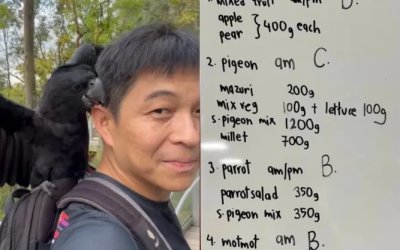 1. mixed fruit am/pm D.
apple
pear } 400g each
2. pigeon am C.
mazuri 200g
mix veg 100g + lettuce 100g
s.pigeon mix 1200g
millet 700g
3. parrot am/pm B.
parrot salad 350g
s.pigeon mix 350g
4. motmot am B.